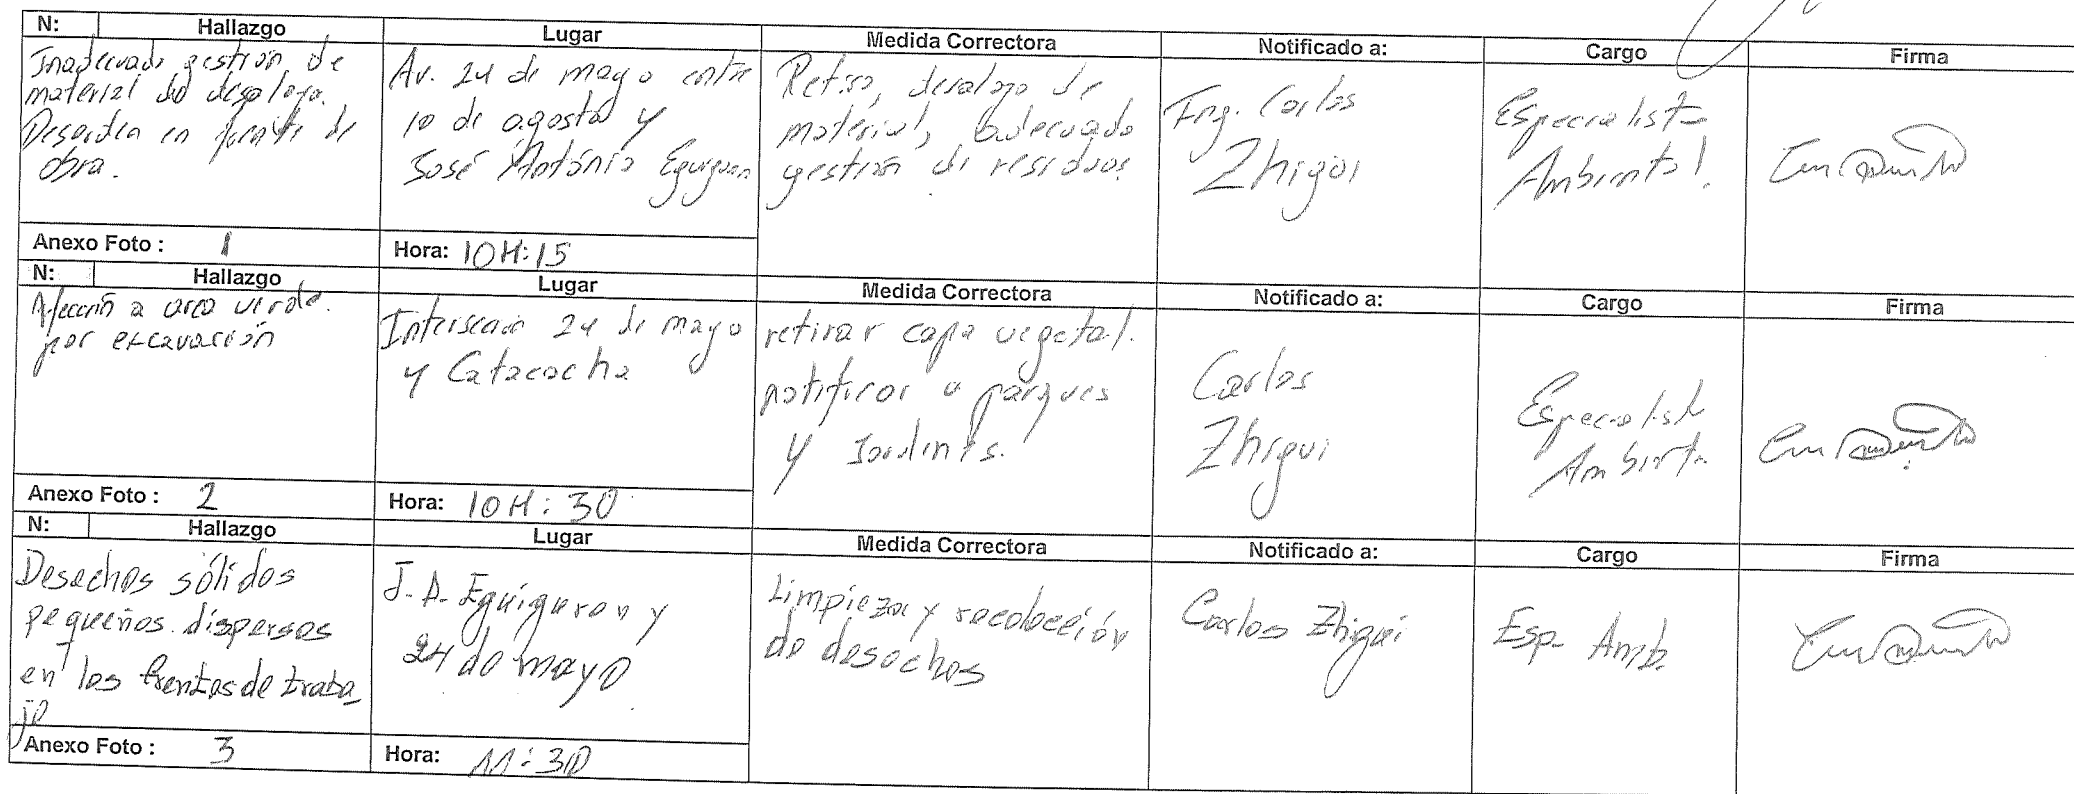 N: Hallazgo Lugar Medida Correctora Notificado a: Cargo Firma
Inadecuada gestión de
material de desalojo.
Desorden en frente de
obra.
Av. 24 de mayo entre
10 de agosto y
José Antonio Eguiguren
Retiro, desalojo de
material, adecuada
gestión de residuos.
Ing. Carlos
Zhigui
Especialista
Ambiental.
Anexo Foto : 1
Hora: 10H:15
N: Hallazgo Lugar Medida Correctora Notificado a: Cargo Firma
Afección a area verde.
por excavación
Intersección 24 de mayo
y Catacocha
retirar capa vegetal.
notificar a parques
y
Carlos
Zhigui
Especialist
Ambient
Anexo Foto : 2
Hora: 10H:30
N: Hallazgo Lugar Medida Correctora Notificado a: Cargo Firma
Desechos sólidos
pequeños dispersos
en los frentes de traba_
jo
J.A. Eguiguren y
24 de mayo
Limpieza y recolección
de desechos
Carlos Zhigui
Esp. Amb.
Anexo Foto : 3
Hora: 11:30